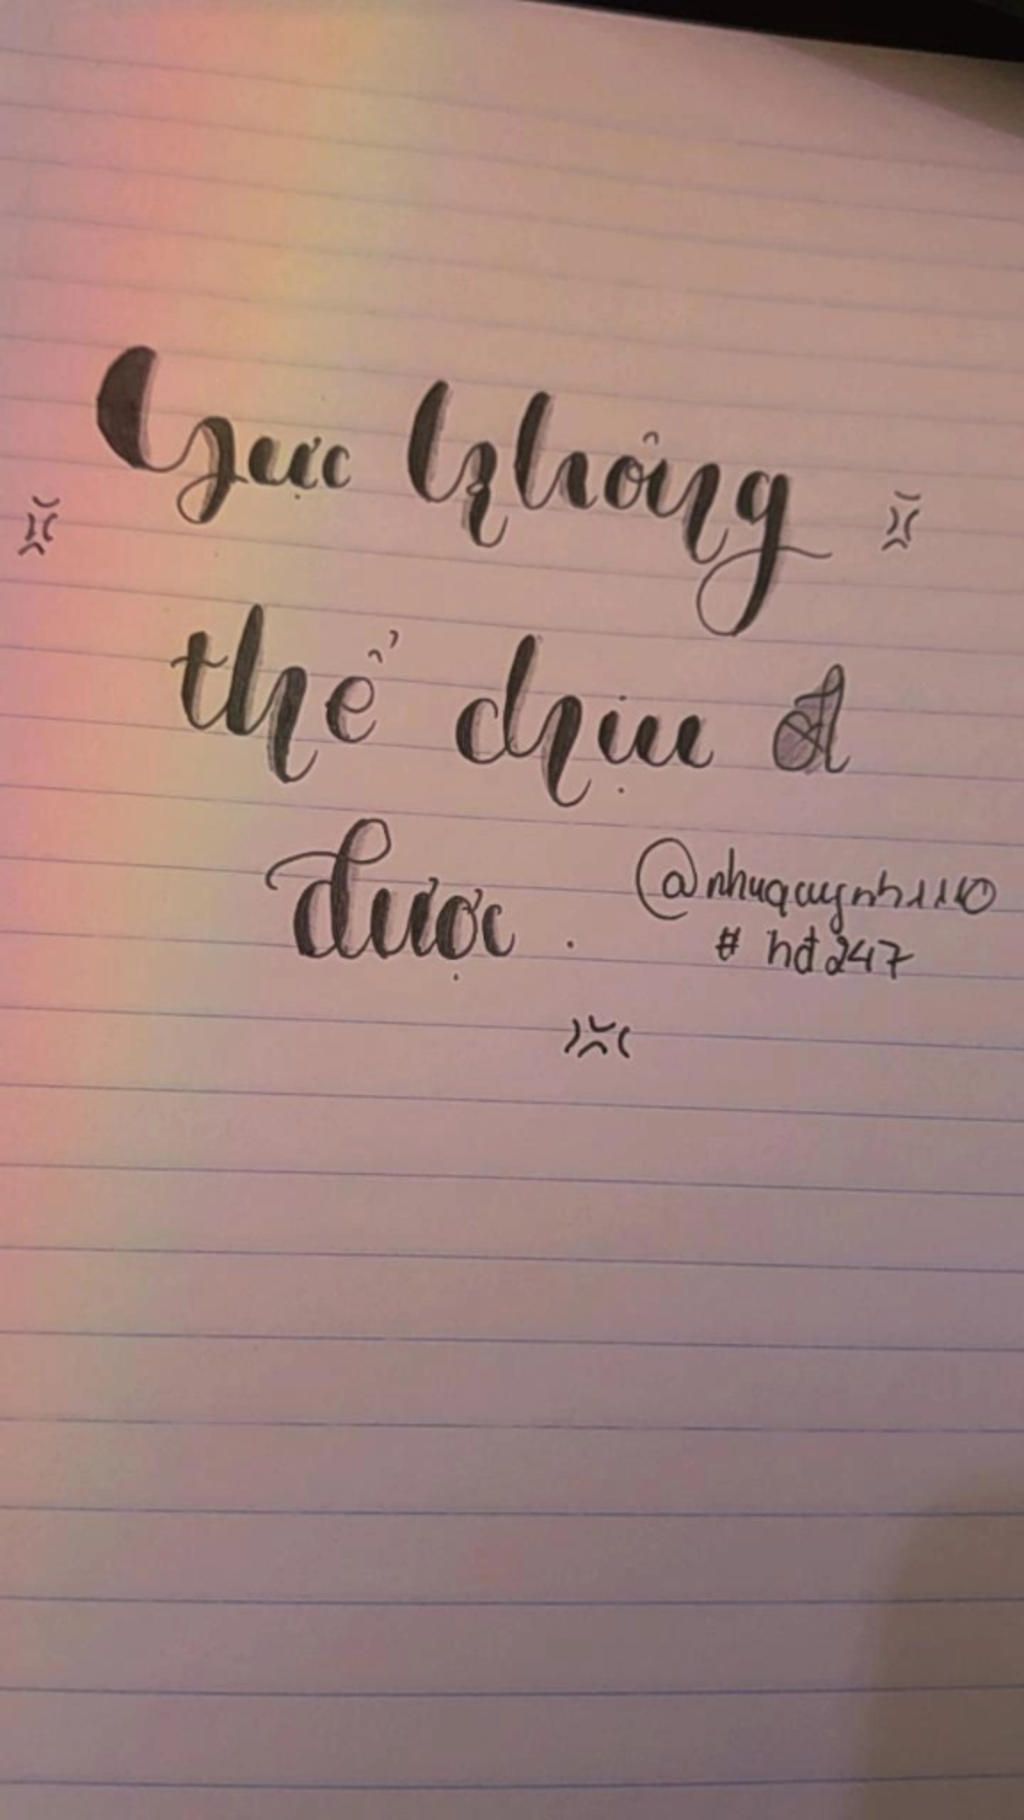 Yực không
thể chịu đ
được .
@nhuquynh1110
# hđ247